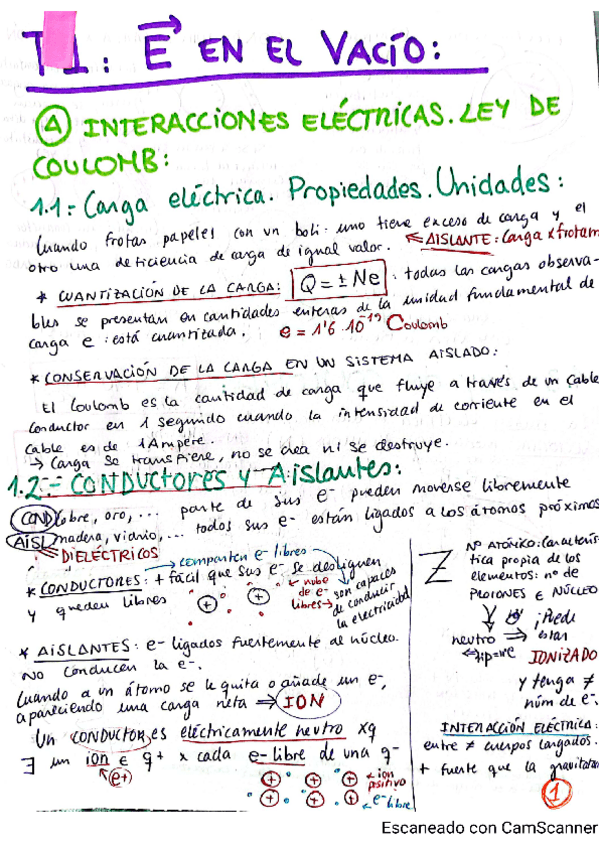 T1: E EN EL VACÍO:
④ INTERACCIONES ELÉCTRICAS. LEY DE
COULOMB:
1.1.- Carga eléctrica. Propiedades. Unidades:
Cuando frotas papeles con un boli uno tiene exceso de carga y el
otro una deficiencia de carga de igual valor. ← AISLANTE: Carga x frotam
* CUANTIZACIÓN DE LA CARGA: Q = ± Ne : todas las cargas observa-
bles se presentan en cantidades enteras de la unidad fundamental de
carga e : está cuantizada. e = 1'6 · 10⁻¹⁹ Coulomb
* CONSERVACIÓN DE LA CARGA EN UN SISTEMA AISLADO:
El Coulomb es la cantidad de carga que fluye a través de un cable
conductor en 1 segundo cuando la intensidad de corriente en el
cable es de 1 Ampère.
→ Carga se transfiere, no se crea ni se destruye.
1.2.- CONDUCTORES Y AISLANTES:
COND cobre, oro, ... parte de sus e⁻ pueden moverse libremente
AISL madera, vidrio, ... todos sus e⁻ están ligados a los átomos próximos
← DIELÉCTRICOS
→ comparten e⁻ libres
* CONDUCTORES: + fácil que sus e⁻ se desliguen
y queden libres
nube de e⁻ libres → son capaces de conducir la electricidad
* AISLANTES: e⁻ ligados fuertemente al núcleo.
NO conducen la e⁻.
Cuando a un átomo se le quita o añade un e⁻,
apareciendo una carga neta ⇒ ION
Un CONDUCTOR es eléctricamente neutro xq
∃ un ion c q+ x cada e⁻ libre de una q-
(e+)
+ + + + ← ion positivo
+ + + + ← e⁻ libre
Z Nº ATÓMICO: Caracterís-
tica propia de los
elementos: nº de
PROTONES E NÚCLEO
¡Puede
neutro ⇒ estar
IONIZADO
y tenga ≠
núm de e⁻.
INTERACCIÓN ELÉCTRICA:
entre ≠ cuerpos cargados.
+ fuerte que la gravitator
1
Escaneado con CamScanner